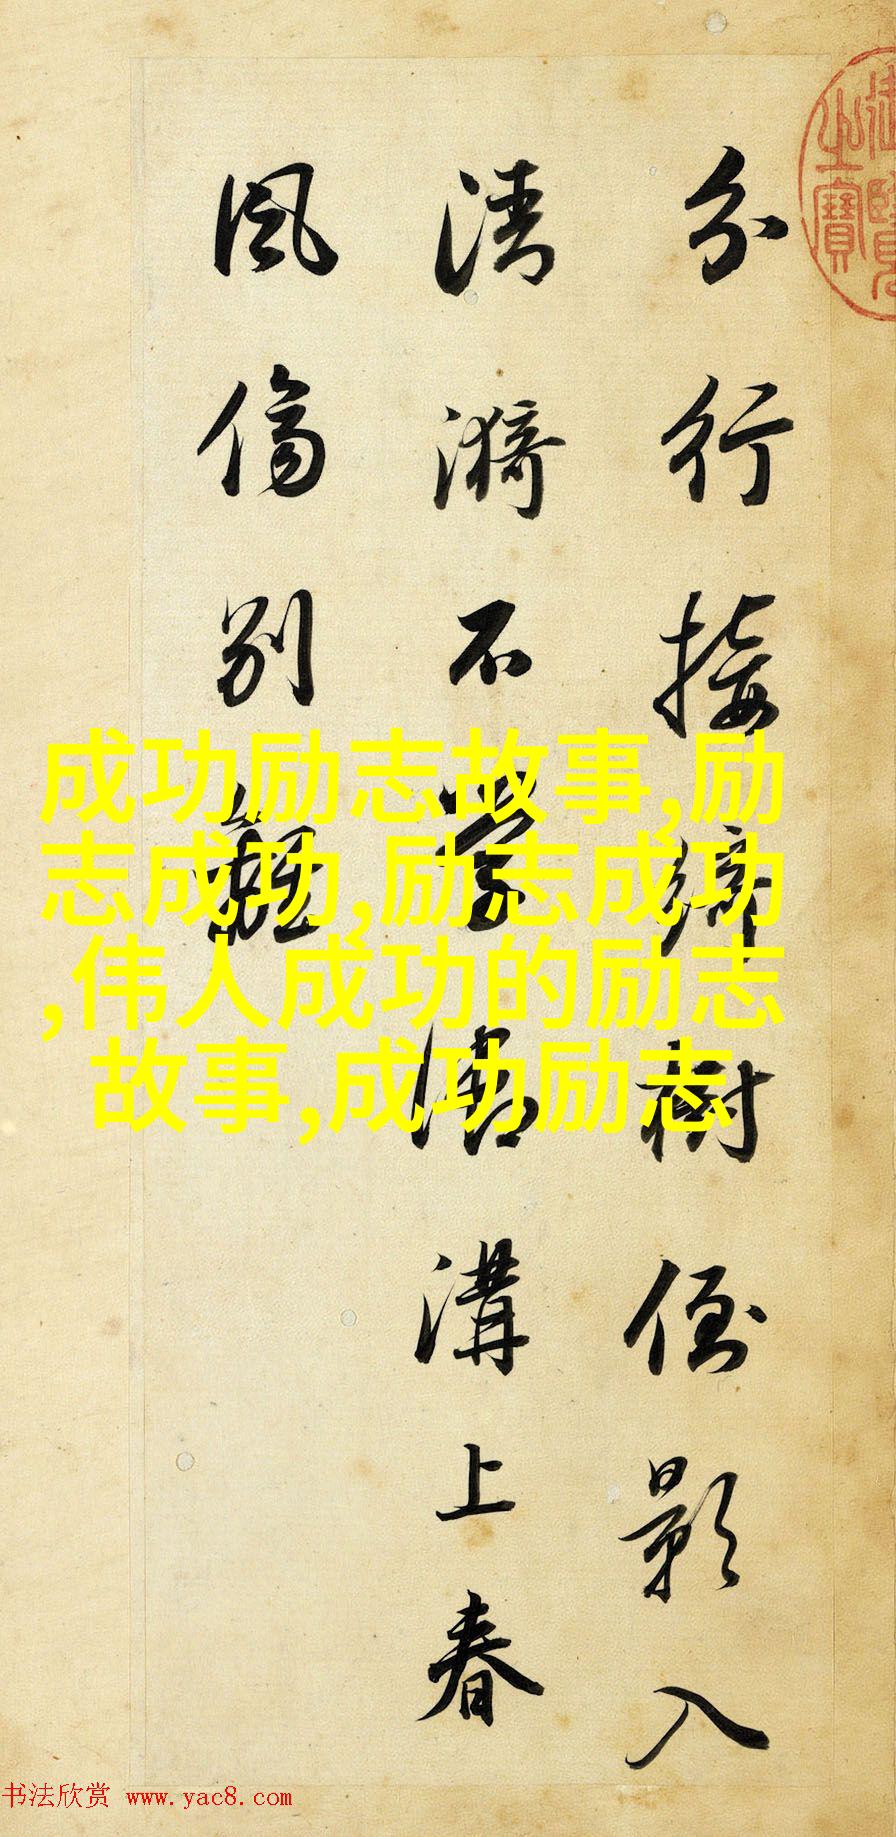 分行接綺樹倒影入
清漪不學御溝上春
風傷別離
之寶
成功励志故事,励
志成功,励志成功
,伟人成功的励志
故事,成功励志
书法欣赏 www.yac8.com